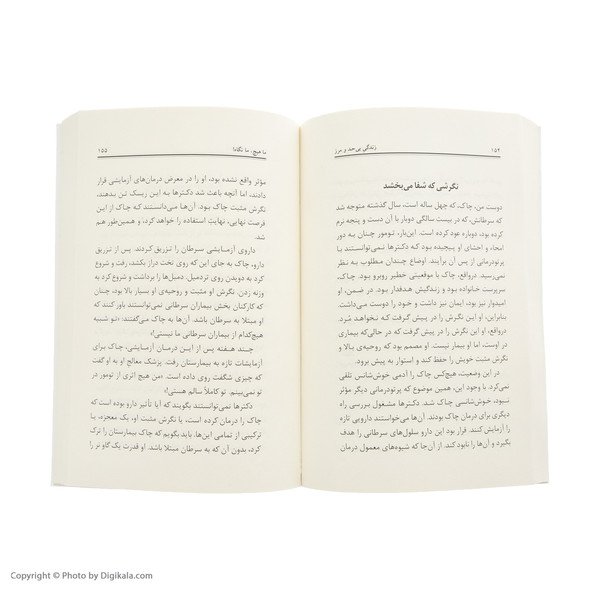 ۱۵۴
زندگی بی‌حد و مرز
نگرشی که شفا می‌بخشد
دوست من، چاک، که چهل ساله است، سال گذشته متوجه شد
که سرطانش، که در بیست سالگی دوبار با آن دست و پنجه نرم
کرده بود، دوباره عود کرده است. این‌بار، تومور چنان به دور
امعاء و احشای او پیچیده بود که دکترها نمی‌توانستند با
پرتودرمانی از پس آن برآیند. اوضاع چندان مطلوب به نظر
نمی‌رسید. درواقع، چاک با موقعیتی خطیر روبرو بود. چاک،
سرپرست خانواده بود و زندگیش هدفدار بود. در ضمن، او
امیدوار نیز بود، ایمان نیز داشت و خود را دوست می‌داشت.
بنابراین، او این نگرش را در پیش گرفت که نخواهد مرد.
درواقع، او این نگرش را در پیش گرفت که در حالی‌که بیماری
در اوست، اما او بیمار نیست. او مصمم بود که روحیه‌ی بالا و
نگرش مثبت خویش را حفظ کند و استوار به پیش برود.
در این وضعیت، هیچ‌کس چاک را آدمی خوش‌شانس تلقی
نمی‌کرد. با وجود این، همین موضوع که پرتودرمانی دیگر مؤثر
نبود، خوش‌شانسی چاک شد. دکترها مشغول بررسی راه
دیگری برای درمان چاک بودند. آن‌ها می‌خواستند دارویی تازه
را آزمایش کنند. قرار بود این دارو سلول‌های سرطانی را هدف
بگیرد و آن‌ها را نابود کند. از آن‌جا که شیوه‌های معمول درمان
ما هیچ، ما نگاه!
۱۵۵
مؤثر واقع نشده بود، او را در معرض درمان‌های آزمایشی قرار
دادند، اما آنچه باعث شد دکترها به این ریسک تن بدهند،
نگرش مثبت چاک بود. آن‌ها می‌دانستند که چاک از این
فرصت نهایی، نهایتِ استفاده را خواهد کرد، و همین‌طور هم
شد.
داروی آزمایشی سرطان را تزریق کردند. پس از تزریق
دارو، چاک به جای این که روی تخت دراز بکشد، رفت و شروع
کرد به دویدن روی تردمیل. دمبل‌ها را برداشت و شروع کرد به
وزنه زدن. نگرش او مثبت و روحیه‌ی او بسیار بالا بود، چنان
که کارکنان بخش بیماران سرطانی نمی‌توانستند باور کنند که
او مبتلا به سرطان باشد. آن‌ها به چاک می‌گفتند: «تو شبیه
هیچ‌کدام از بیماران سرطانی ما نیستی!»
چند هفته پس از این درمان آزمایشی، چاک برای
آزمایشات تازه به بیمارستان رفت. پزشک معالج او به او گفت
که چیزی شگفت روی داده است. «من هیچ اثری از تومور در
تو نمی‌بینم. تو کاملاً سالم هستی!»
دکترها نمی‌توانستند بگویند که آیا تأثیر دارو بوده است که
چاک را درمان کرده است، یا نگرش مثبت او، یک معجزه، یا
ترکیبی از تمامی این‌ها. باید بگویم که چاک بیمارستان را ترک
کرد، بدون آن که به سرطان مبتلا باشد. او قدرت یک گاو نر را
Copyright © Photo by Digikala.com